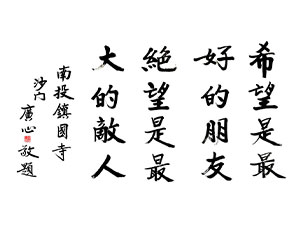 希望是最
好的朋友
絕望是最
大的敵人
南投鎮國寺
沙门廣心敬題